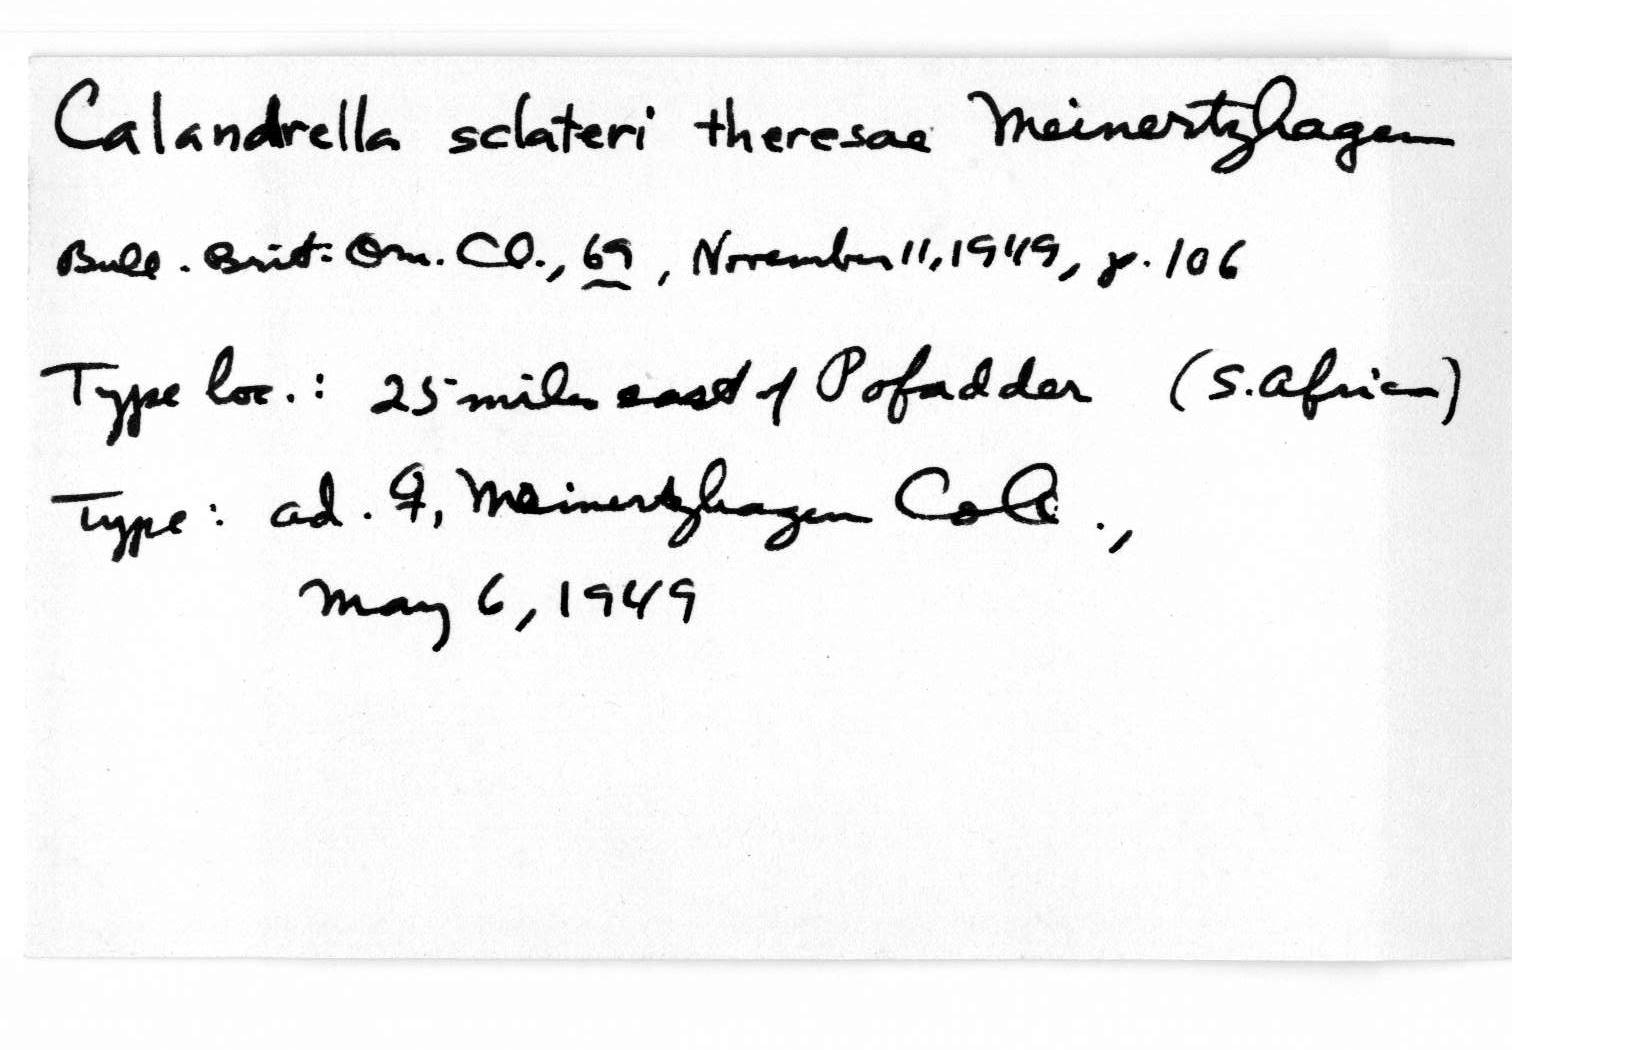 Calandrella sclateri theresae Meinertzhagen
Bull. Brit. Orn. Cl., 69, November 11, 1949, p. 106
Type loc.: 25 miles east of Pofadder (S. Africa)
Type: ad. ♀, Meinertzhagen Coll.,
May 6, 1949